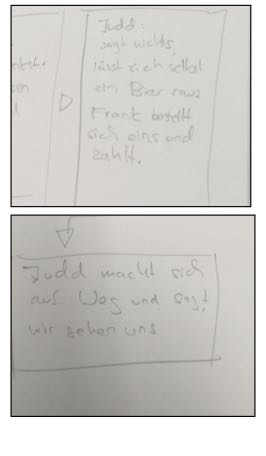 Judd:
sagt nichts,
lässt sich selbst
ein Bier raus
Frank bestellt
sich eins und
zahlt.
Judd macht sich
auf Weg und sagt,
wir sehen uns